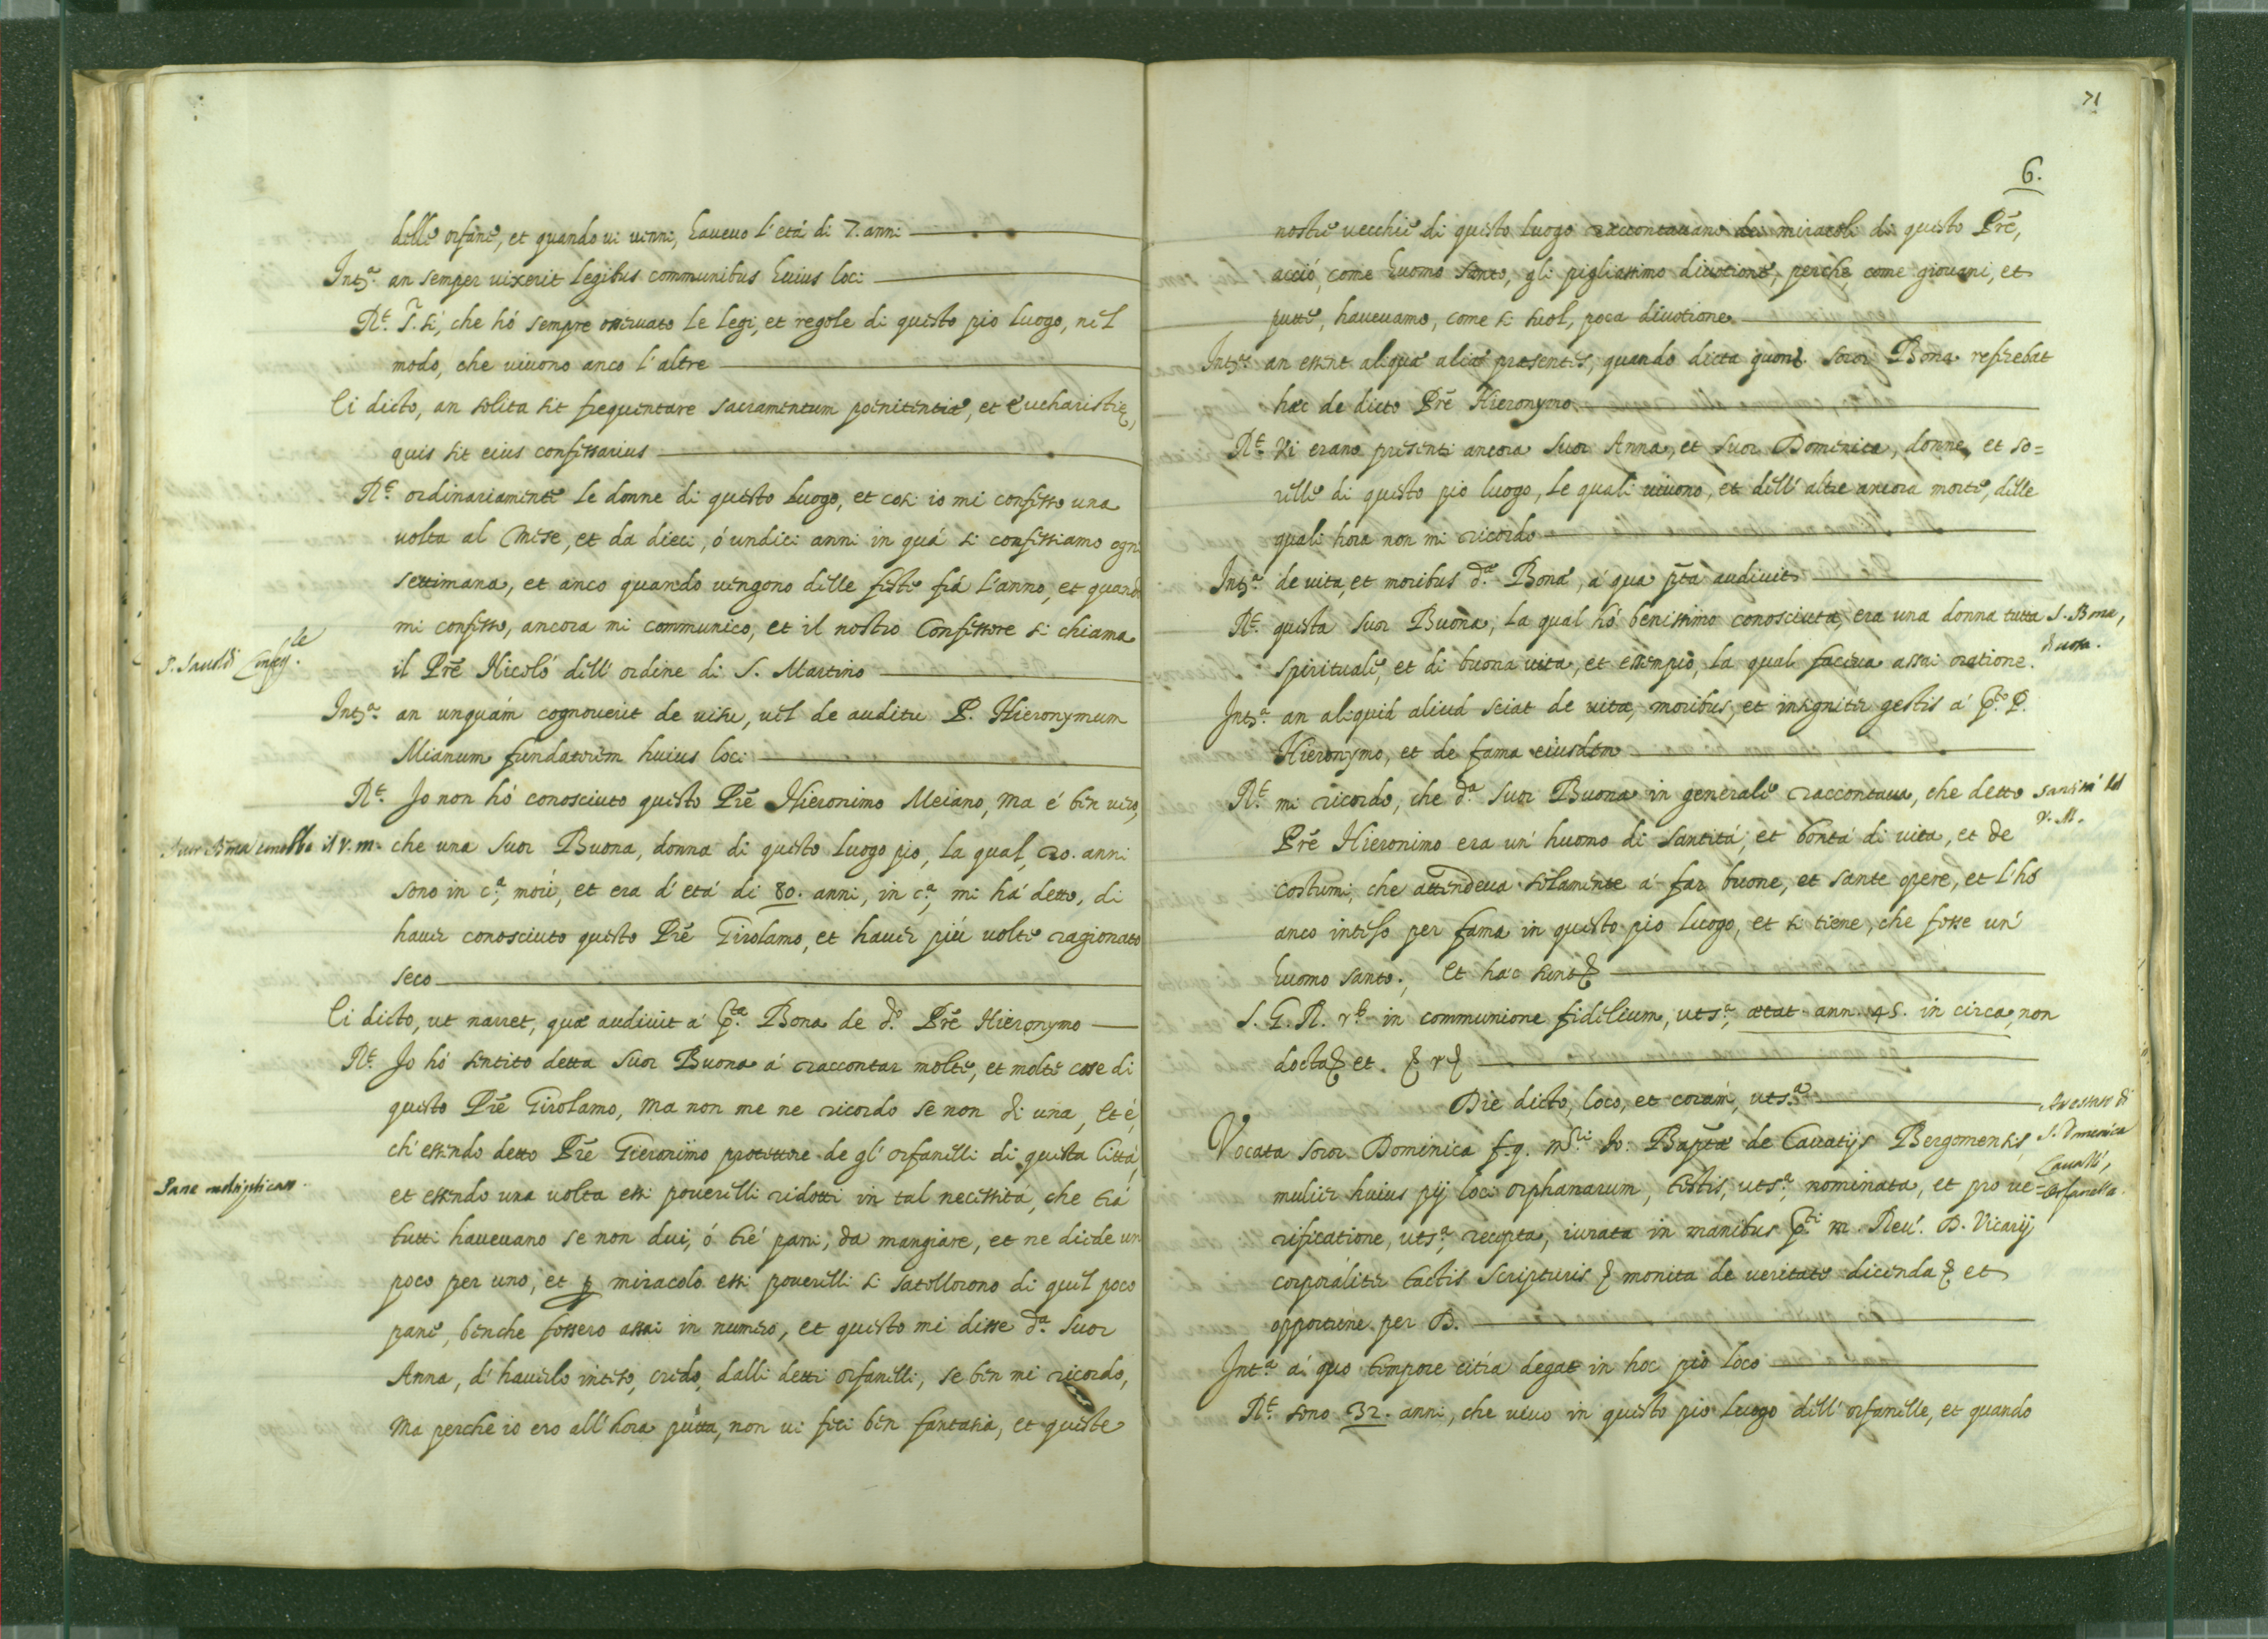 delle orfane, et quando vi venni, havevo l'etá di 7. anni
Int.ª an semper vixerit legibus communibus huius loci
R.t S. sí, che hó sempre osservato le legi, et regole di questo pio luogo, nel
modo, che vivono anco l'altre
Ei dicto, an solita sit frequentare sacramentum poenitentiæ, et Eucharistię,
quis sit eius confessarius
R.t ordinariamente le donne di questo luogo, et cosi io mi confesso una
volta al mese, et da dieci, ó undici anni in quá si confessiamo ogni
settimana, et anco quando vengono delle feste frá l'anno, et quando
mi confesso, ancora mi communico, et il nostro Confessore si chiama
il Prē Nicoló dell'ordine di S. Martino
Int.ª an unquám cognoverit de visu, vel de auditu P. Hieronymum
Mianum fundatorem huius loci
R.t Io non hó conosciuto questo Prē Hieronimo Meiano, ma é ben vero,
Suor Bona conobbe il V. M.
che una Suor Buona, donna di questo luogo pio, la qual, 20. anni
sono in c.ª, morí, et era d'etá di 80. anni, in c.ª, mi há detto, di
haver conosciuto questo Prē Girolamo, et haver piú volte ragionato
seco
Ei dicto, ut narret, quæ audivit á p.ta Bona de d.o Prē Hieronymo
R.t Io hó sentito detta Suor Buona á raccontar molte, et molte cose di
questo Prē Girolamo, ma non me ne ricordo se non di una, et é,
ch'essendo detto Prē Gieronimo protettore de gl'orfanelli di questa Cittá,
Pane moltiplicato.
et essendo una volta essi poverelli ridotti in tal necessitá, che trá
tutti havevano se non dui, ó tré pani, da mangiare, et ne diede un
poco per uno, et ꝑ miracolo essi poverelli si satollorono di quel poco
pane, benche fossero assai in numero, et questo mi disse d.ª Suor
Anna, d'haverlo inteso, credo, dalli detti orfanelli, se ben mi ricordo,
ma perche io ero all'hora putta, non vi feci ben fantasia, et queste
71
6.
nostre vecchie di questo luogo raccontavano dei miracoli di questo Prē,
acció, come huomo santo, gli pigliassimo divotione, perche, come giovani, et
putte, havevamo, come si suol, poca divotione
Int.ª an essent aliquæ aliæ præsentes, quando dicta quond. soror Bona referebat
hæc de dicto Prē Hieronymo
R.t Vi erano presenti ancora Suor Anna, et Suor Domenica, donne, et so=
relle di questo pio luogo, le quali vivono, et dell'altre ancora morte, delle
quali hora non mi ricordo
Int.ª de vita, et moribus d.æ Bonæ, á qua p̄ta audivit
R.t questa Suor Buona, la qual hó benissimo conosciuta, era una donna tutta
S. Bona,
spirituale, et di buona vita, et essempio, la qual faceva assai oratione.
Int.ª an aliquid aliud sciat de vita, moribus, et insigniter gestis á p.to P.
Hieronymo, et de fama eiusdem
R.t mi ricordo, che d.ª Suor Buona in generale raccontava, che detto
santitá del
V. M.
Prē Hieronimo era un'huomo di santitá, et bontá di vita, et de
costumi, che attendeva solamente á far buone, et sante opere, et l'hó
anco inteso per fama in questo pio luogo, et si tiene, che fosse un'
huomo santo. Et hæc sunt
S. G. R. in communione fidelium, uts.ª, ætat. ann. 45. in circa, non
docta et.
Die dicto, loco, et corám, uts.ª
Vocata soror Dominica f. q. Io: Bap̄tæ de Cavatijs Bergomensis,
S. Domenica
Cavalli,
orfanella.
mulier huius pij loci orphanarum, testis, uts.ª, nominata, et pro ve=
rificatione, uts.ª, recepta, iurata in manibus p.ti m. Rev. D. Vicarij
corporaliter tactis scripturis monita de veritate dicenda et
opportune per D.
Int.ª á quo tempore citra degat in hoc pio loco
R.t sono 32. anni, che vivo in questo pio luogo dell'orfanelle, et quando